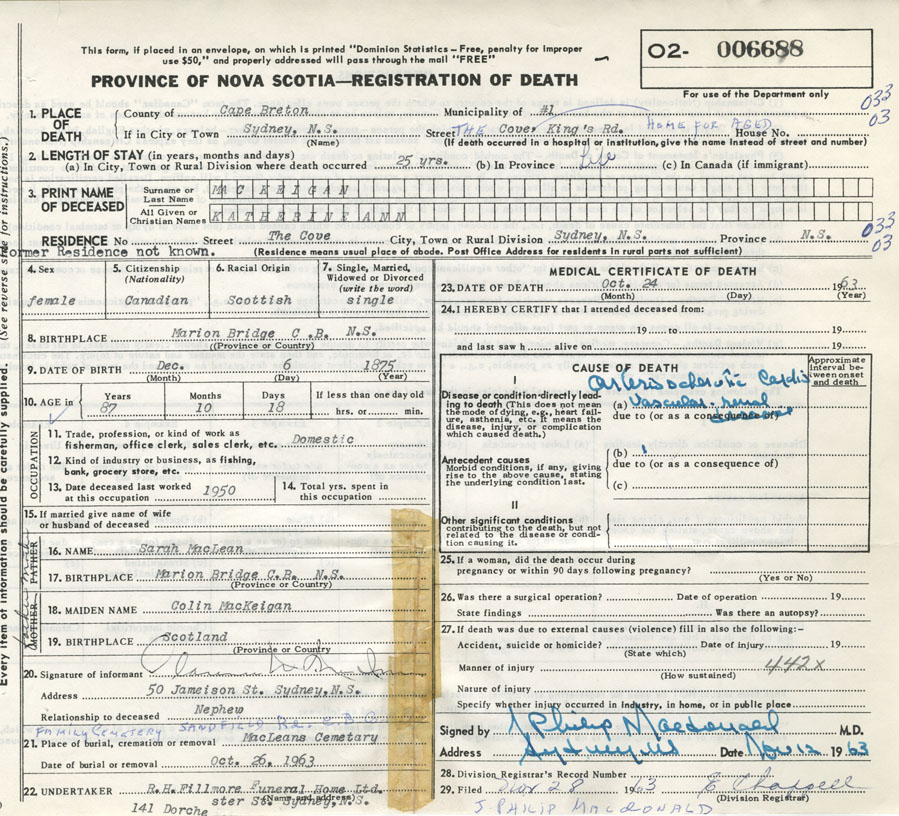 This form, if placed in an envelope, on which is printed "Dominion Statistics – Free, penalty for improper
use $50," and properly addressed will pass through the mail "FREE"
O2- 006688
For use of the Department only
PROVINCE OF NOVA SCOTIA—REGISTRATION OF DEATH
033
03
1. PLACE OF DEATH
County of Cape Breton Municipality of #1
If in City or Town Sydney, N.S. Street THE Cove, King's Rd. HOME FOR AGED House No.
(Name) (If death occurred in a hospital or institution, give the name instead of street and number)
2. LENGTH OF STAY (in years, months and days)
(a) In City, Town or Rural Division where death occurred 25 yrs. (b) In Province Life (c) In Canada (if immigrant)
3. PRINT NAME OF DECEASED
Surname or Last Name MAC KEIGAN
All Given or Christian Names KATHERINE ANN
033
03
RESIDENCE No Street The Cove City, Town or Rural Division Sydney, N.S. Province N.S.
ormer Residence not known. (Residence means usual place of abode. Post Office Address for residents in rural parts not sufficient)
Every item of information should be carefully supplied. (See reverse side for instructions.)
4. Sex
female
5. Citizenship
(Nationality)
Canadian
6. Racial Origin
Scottish
7. Single, Married, Widowed or Divorced
(write the word)
single
8. BIRTHPLACE Marion Bridge C.B. N.S.
(Province or Country)
9. DATE OF BIRTH Dec. 6 1875
(Month) (Day) (Year)
10. AGE in Years Months Days If less than one day old
87 10 18 hrs. or min.
OCCUPATION
11. Trade, profession, or kind of work as
fisherman, office clerk, sales clerk, etc. Domestic
12. Kind of industry or business, as fishing,
bank, grocery store, etc.
13. Date deceased last worked
at this occupation 1950
14. Total yrs. spent in
this occupation
15. If married give name of wife
or husband of deceased
FATHER
16. NAME Sarah MacLean
17. BIRTHPLACE Marion Bridge C.B. N.S.
(Province or Country)
MOTHER
18. MAIDEN NAME Colin MacKeigan
19. BIRTHPLACE Scotland
(Province or Country)
20. Signature of informant
Address 50 Jameison St. Sydney, N.S.
Relationship to deceased Nephew
FAMILY CEMETERY SANDFIELD Rd. C B
21. Place of burial, cremation or removal MacLeans Cemetary
Date of burial or removal Oct. 26, 1963
22. UNDERTAKER R.H. Fillmore Funeral Home Ltd.
(Name and address)
141 Dorche ster St. Sydney, N.S.
MEDICAL CERTIFICATE OF DEATH
23. DATE OF DEATH Oct. 24 1963
(Month) (Day) (Year)
24. I HEREBY CERTIFY that I attended deceased from:
19 to 19
and last saw h alive on 19
CAUSE OF DEATH
Approximate interval between onset and death
I
Disease or condition directly leading to death (This does not mean the mode of dying, e.g., heart failure, asthenia, etc. It means the disease, injury, or complication which caused death.)
(a) arteriosclerotic Cardio
Vascular-renal
disease
due to (or as a consequence of)
Antecedent causes
Morbid conditions, if any, giving rise to the above cause, stating the underlying condition last.
(b)
due to (or as a consequence of)
(c)
II
Other significant conditions
contributing to the death, but not related to the disease or condition causing it.
25. If a woman, did the death occur during
pregnancy or within 90 days following pregnancy?
(Yes or No)
26. Was there a surgical operation? Date of operation 19
State findings Was there an autopsy?
27. If death was due to external causes (violence) fill in also the following:–
Accident, suicide or homicide? Date of injury 19
(State which)
Manner of injury 442X
(How sustained)
Nature of injury
Specify whether injury occurred in industry, in home, or in public place
Signed by J Philip Macdonald M.D.
Address Sydney NS Date Nov 12 1963
28. Division Registrar's Record Number
29. Filed Nov 28 1963 E Chappell
(Division Registrar)
J. PHILIP MACDONALD